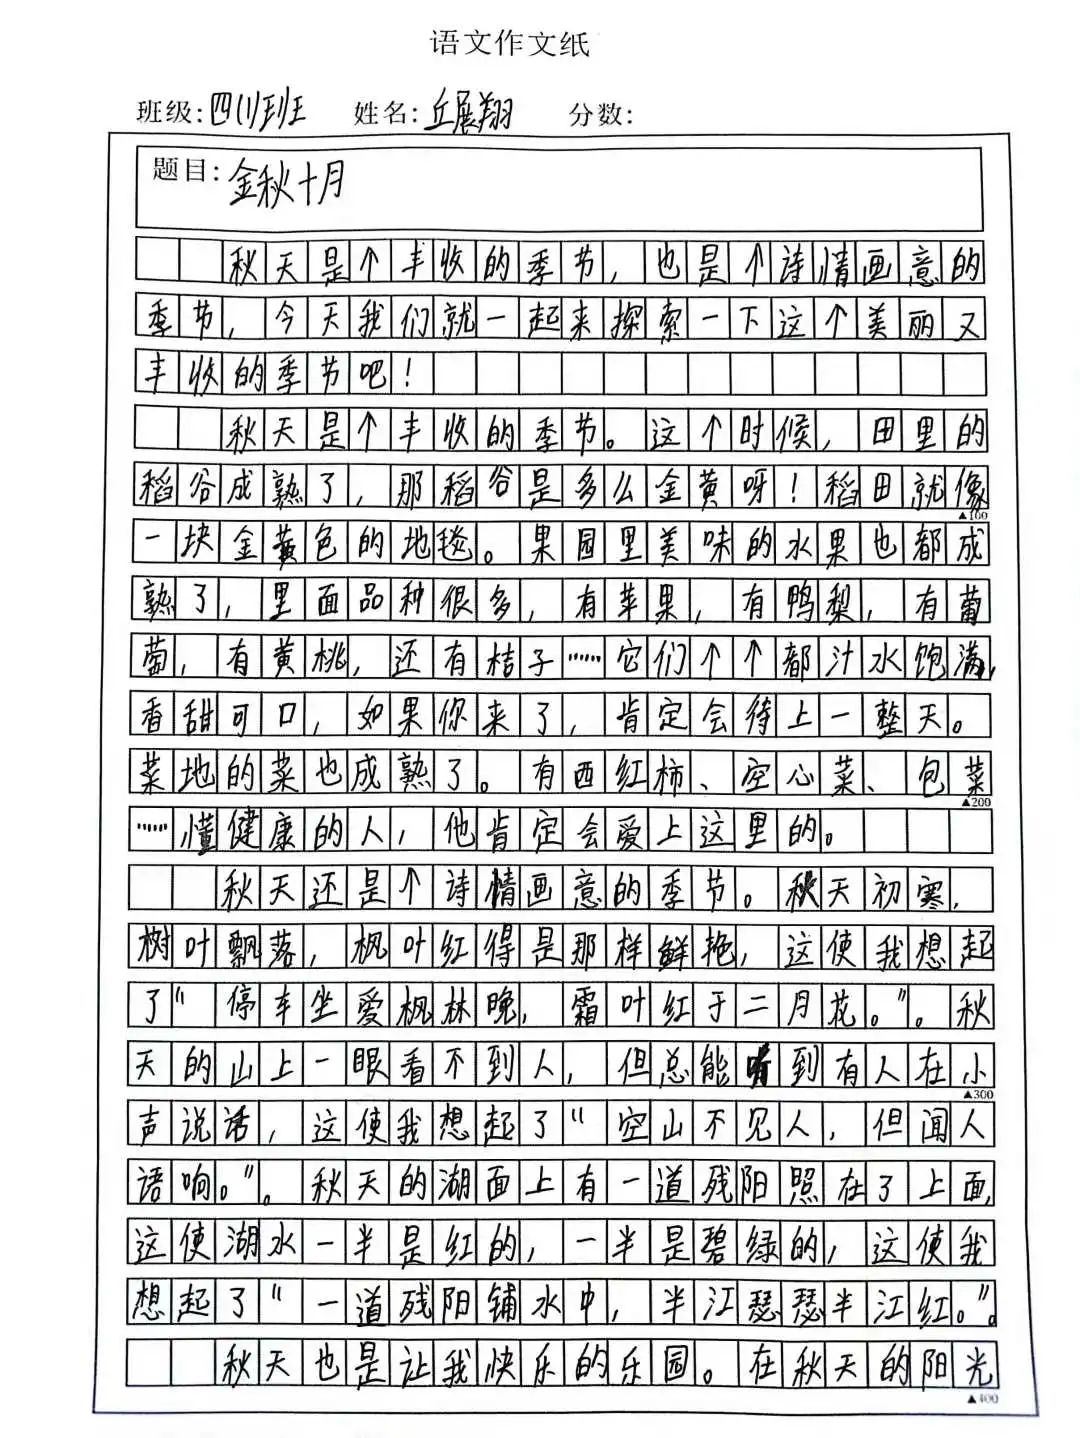 语文作文纸
班级:四(1)班 姓名:丘展翔 分数:
题目:金秋十月
秋天是个丰收的季节，也是个诗情画意的
季节，今天我们就一起来探索一下这个美丽又
丰收的季节吧！
秋天是个丰收的季节。这个时候，田里的
稻谷成熟了，那稻谷是多么金黄呀！稻田就像
▲100
一块金黄色的地毯。果园里美味的水果也都成
熟了，里面品种很多，有苹果，有鸭梨，有葡
萄，有黄桃，还有桔子……它们个个都汁水饱满，
香甜可口，如果你来了，肯定会待上一整天。
菜地的菜也成熟了。有西红柿、空心菜、包菜
▲200
……懂健康的人，他肯定会爱上这里的。
秋天还是个诗情画意的季节。秋天初寒，
树叶飘落，枫叶红得是那样鲜艳，这使我想起
了“停车坐爱枫林晚，霜叶红于二月花。”。秋
天的山上一眼看不到人，但总能听到有人在小
▲300
声说话，这使我想起了“空山不见人，但闻人
语响。”。秋天的湖面上有一道残阳照在了上面，
这使湖水一半是红的，一半是碧绿的，这使我
想起了“一道残阳铺水中，半江瑟瑟半江红。”。
秋天也是让我快乐的乐园。在秋天的阳光
▲400